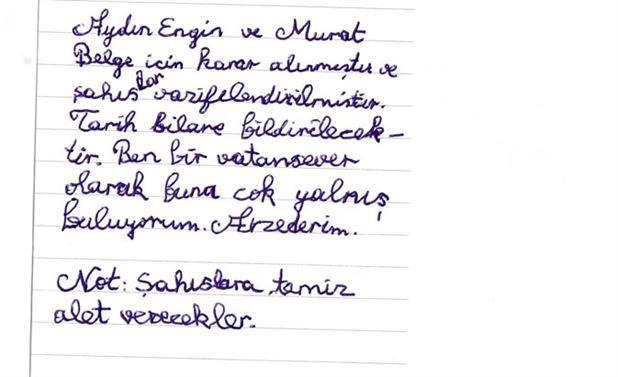 Aydın Engin ve Murat
Belge için karar alınmıştır ve
şahıslar vazifelendirilmiştir.
Tarih bilare bildirilecek-
tir. Ben bir vatansever
olarak buna cok yalnış
buluyorum. Arzederim.
Not: Şahıslara temiz
alet verecekler.